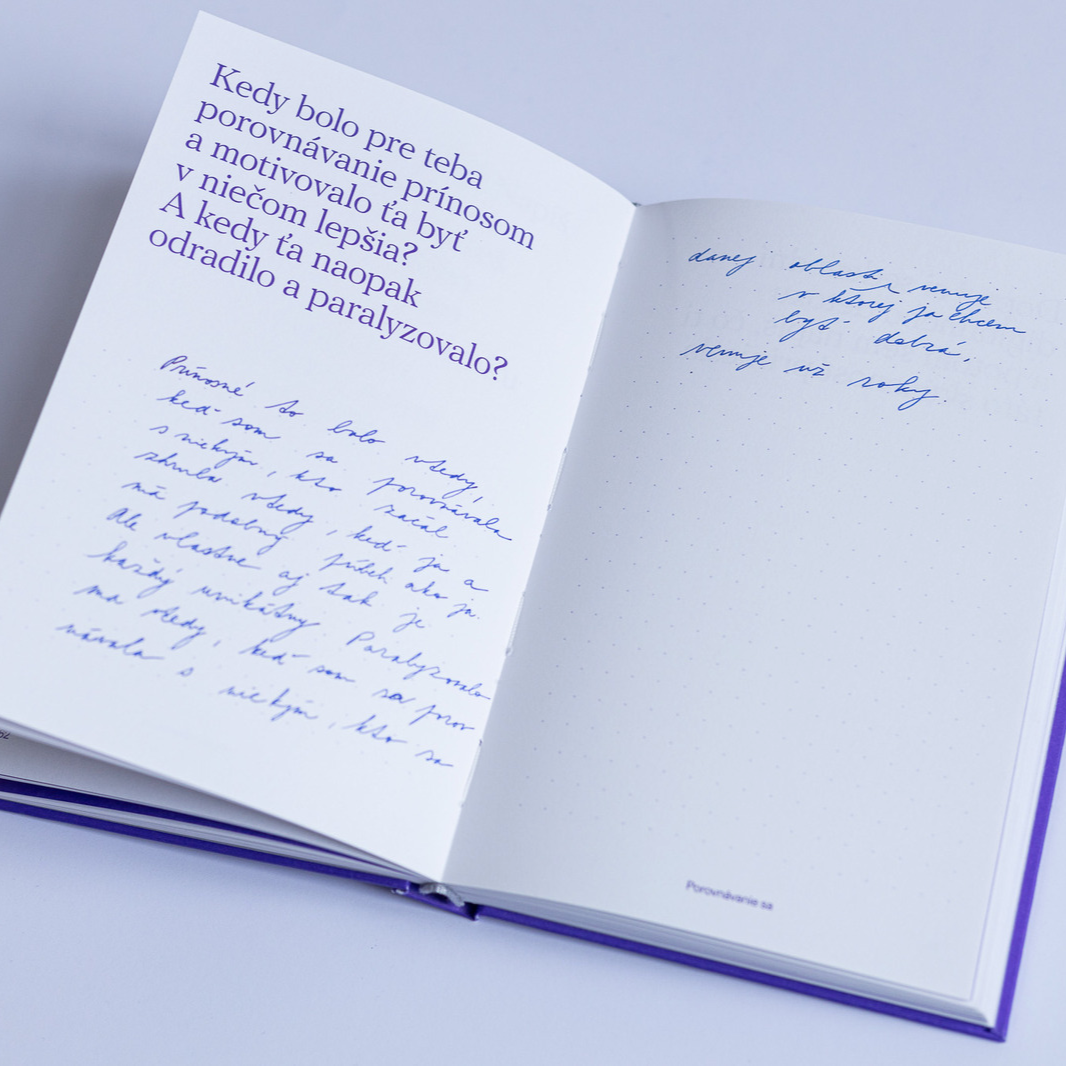 Kedy bolo pre teba
porovnávanie prínosom
a motivovalo ťa byť
v niečom lepšia?
A kedy ťa naopak
odradilo a paralyzovalo?
Prínosné to bolo vtedy,
keď som sa porovnávala
s niekým, kto začal
zhruba vtedy, keď ja a
má podobný príbeh ako ja.
Ale vlastne aj tak je
každý unikátny. Paralyzovalo
ma vtedy, keď som sa porov
návala s niekým, kto sa
danej oblasti venuje
v ktorej ja chcem
byť dobrá,
venuje už roky
Porovnávanie sa